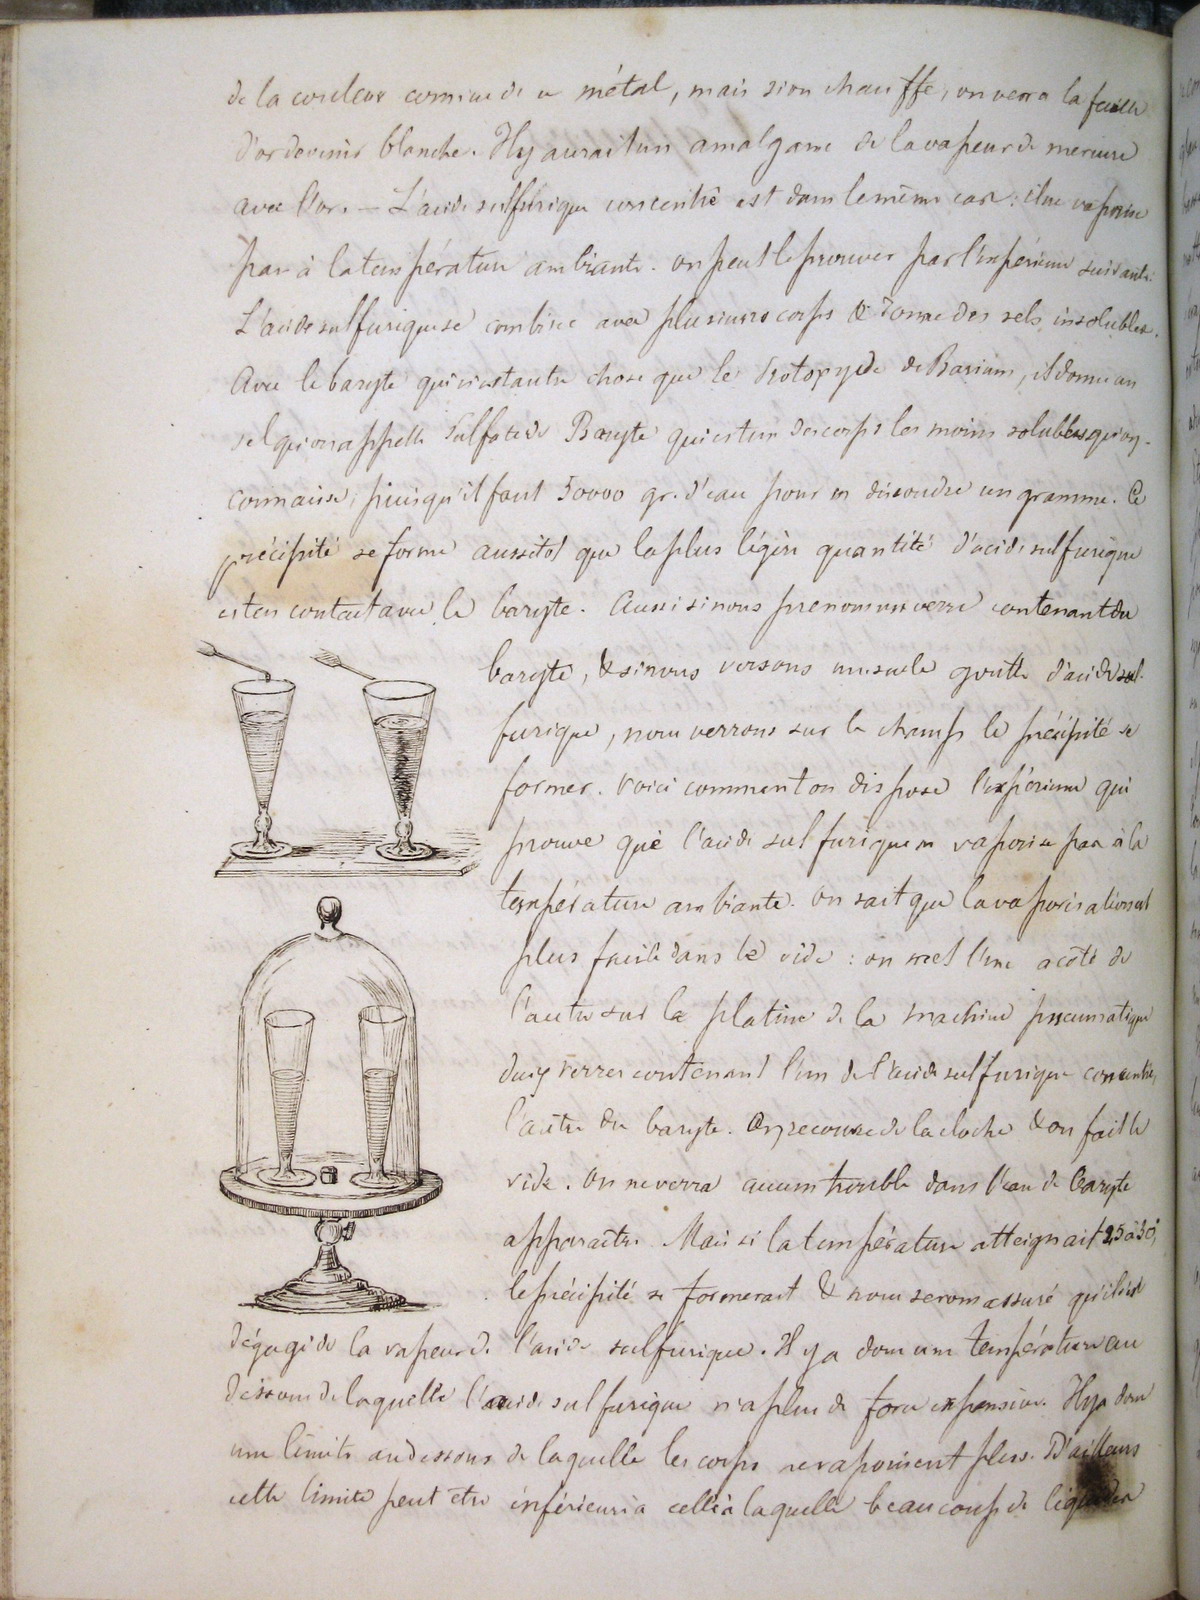 de la couleur comme de ce métal, mais si on chauffe, on verra la feuille
d'or devenir blanche. Il y aurait un amalgame de la vapeur de mercure
avec l'or. — L'acide sulfurique concentré est dans le même cas : il ne vaporise
pas à la température ambiante. on peut le prouver par l'expérience suivante.
L'acide sulfurique se combine avec plusieurs corps & donne des sels insolubles.
Avec le baryte qui n'est autre chose que le Protoxyde de Barium, il donne un
sel qu'on appelle Sulfate de Baryte qui est un des corps les moins solubles qu'on
connaisse, puisqu'il faut 50000 gr. d'eau pour en dissoudre un gramme. Ce
précipité se forme aussitôt que la plus légère quantité d'acide sulfurique
est en contact avec le baryte. Aussi si nous prenons un verre contenant du
baryte, & si nous versons une seule goutte d'acide sul-
furique, nous verrons sur le champ le précipité se
former. Voici comment on dispose l'expérience qui
prouve que l'acide sulfurique ne vaporise pas à la
température ambiante. On sait que la vaporisation est
plus facile dans le vide : on met l'une à côté de
l'autre sur la platine de la machine pneumatique
deux verres contenant l'un de l'acide sulfurique concentré,
l'autre du baryte. On recouvre de la cloche & on fait le
vide. On ne verra aucun trouble dans l'eau de baryte
apparaître. Mais si la température atteignait 25 à 30°,
le précipité se formerait & nous serons assuré qu'il s'est
dégagé de la vapeur de l'acide sulfurique. Il y a donc une température au
dessous de laquelle l'acide sulfurique n'a plus de force expansive. Il y a donc
une limite au dessous de laquelle les corps ne vaporisent plus. D'ailleurs
cette limite peut être inférieur à celle à laquelle beaucoup de liquides